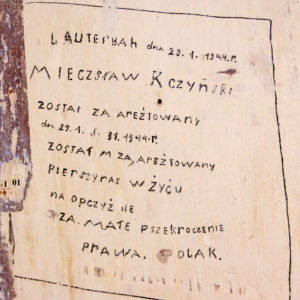 LAUTERBAH dnia 29.1.1944.r.
MIECZSŁAW KCZYŃSKI
ZOSTAŁ ZA AREŻTOWANY
dn 29.1. 31.1944.r.
ZOSTAŁ M ZA, AREŻTOWANY
PIERSZYRAS W ŻYĆU
NA OPCZYŻ NE
ZA. MAŁE PSZEKROCZENIE
PRAWA. POLAK.
01